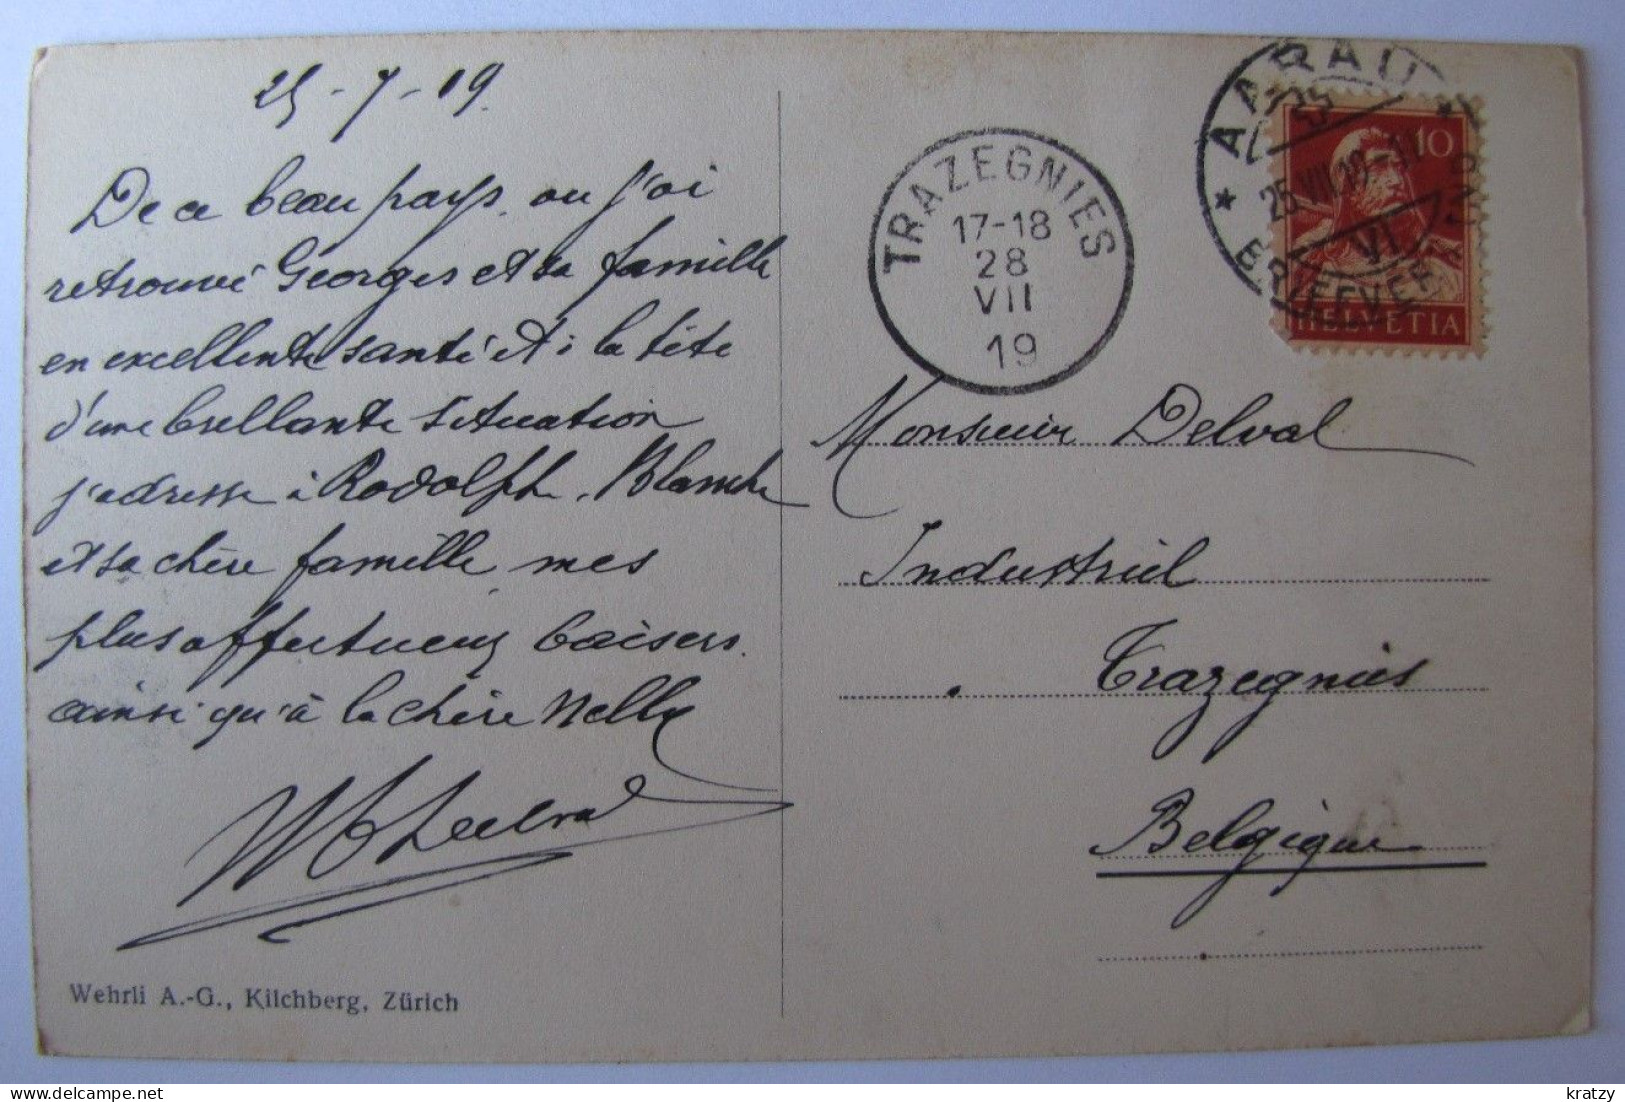 25-7-19.
De ce beau pays, ou j'ai
retrouvé Georges et sa famille
en excellente santé et à la tête
d'une brillante situation
j'adresse à Rodolphe, Blanche
et sa chère famille mes
plus affectueux baisers.
ainsi qu'à la chère Nelly
Wehrli A.-G., Kilchberg, Zürich
TRAZEGNIES
17-18
28
VII
19
AARAU
25.VII.19
VI
10
HELVETIA
Monsieur Delval
Industriel
Trazegnies
Belgique
kratzy